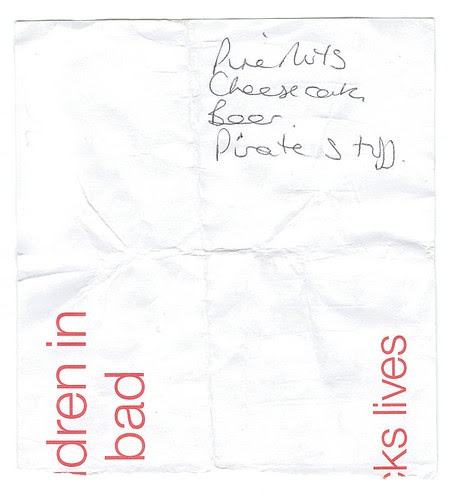 Pine Nuts
Cheesecake
Beer.
Pirate Stuff.
dren in
bad
cks lives